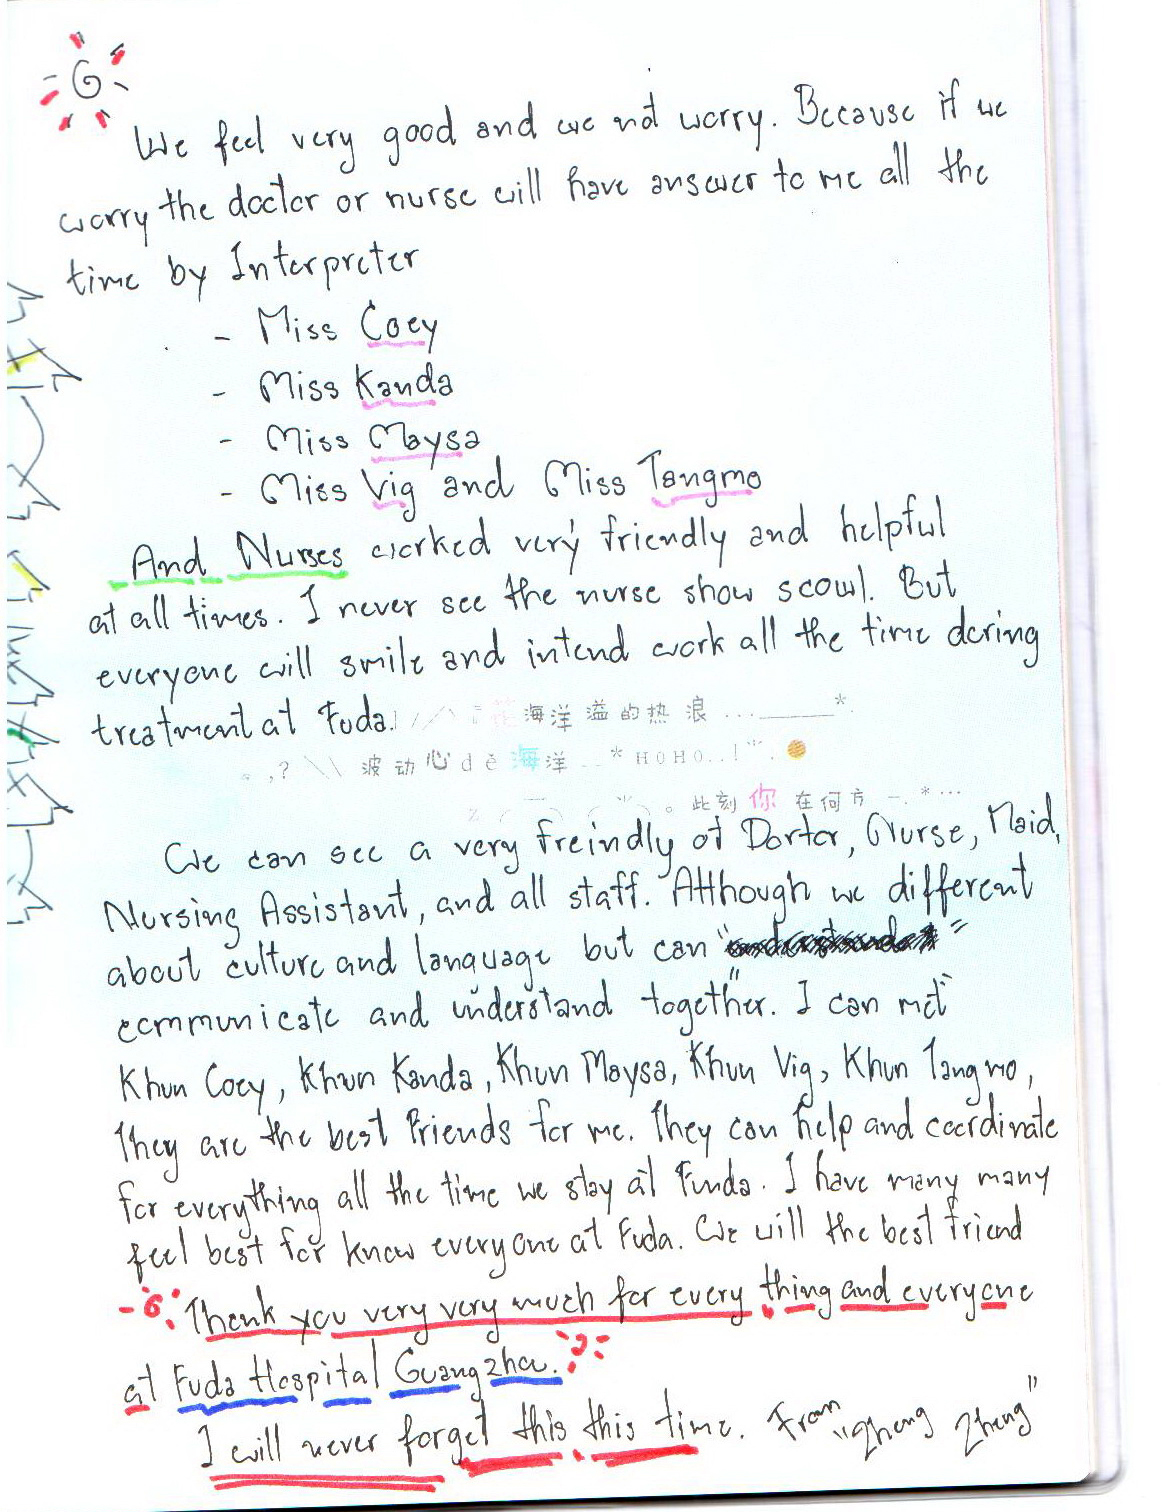 G
We feel very good and we not worry. Because if we
worry the doctor or nurse will have answer to me all the
time by Interpreter
- Miss Coey
- Miss Kanda
- Miss Maysa
- Miss Vig and Miss Tangmo
And Nurses worked very friendly and helpful
at all times. I never see the nurse show scowl. But
everyone will smile and intend work all the time doring
treatment at Fuda.
花海洋溢的热浪...______*.
。,?\\波动心dě海洋..*HOHO..!~.
此刻你在何方 -.*...
We can see a very freindly of Dortor, Nurse, Maid,
Nursing Assistant, and all staff. Although we different
about culture and language but can " "
communicate and understand together". I can met
Khun Coey, Khun Kanda, Khun Maysa, Khun Vig, Khun Tangmo,
They are the best Friends for me. They can help and coordinate
for everything all the time we stay at Funda. I have many many
feel best for know everyone at Fuda. We will the best friend
Thank you very very much for every thing and everyone
at Fuda Hospital Guangzhou.
I will never forget this this time. From "Zheng Zheng"